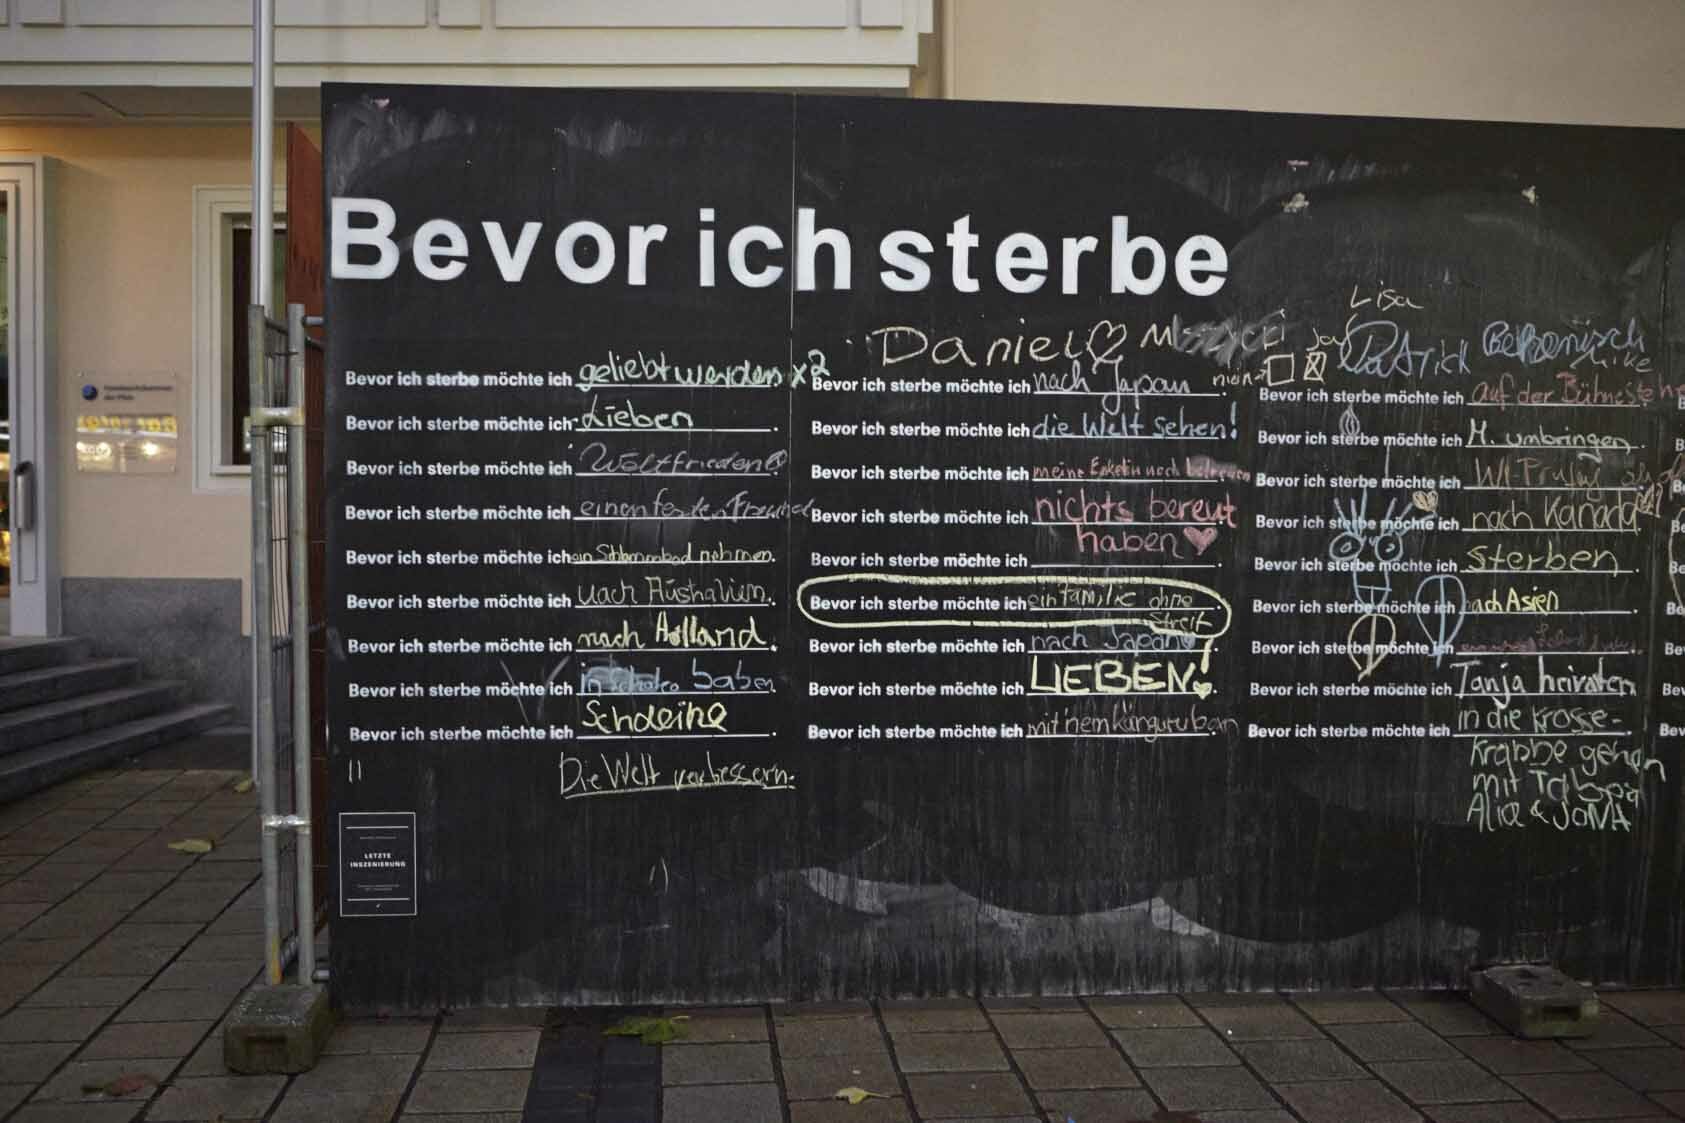 Bevor ich sterbe
Lisa
Daniel ja Patrick
nein
Bevor ich sterbe möchte ich geliebt werden x2
Bevor ich sterbe möchte ich Lieben.
Bevor ich sterbe möchte ich Weltfrieden
Bevor ich sterbe möchte ich einen festen Freund
Bevor ich sterbe möchte ich ein Schlammbad nehmen.
Bevor ich sterbe möchte ich nach
Bevor ich sterbe möchte ich nach Holland.
Bevor ich sterbe möchte ich in baben
Bevor ich sterbe möchte ich .
Die Welt verbessern.
Bevor ich sterbe möchte ich nach Japan.
Bevor ich sterbe möchte ich die Welt sehen!
Bevor ich sterbe möchte ich meine Enkelin noch
Bevor ich sterbe möchte ich nichts bereut
haben
Bevor ich sterbe möchte ich .
Bevor ich sterbe möchte ich ein familie ohne
Streit
Bevor ich sterbe möchte ich nach Japan
Bevor ich sterbe möchte ich LIEBEN!
Bevor ich sterbe möchte ich mit'nem känguru
Bevor ich sterbe möchte ich auf der Bühne stehn
Bevor ich sterbe möchte ich M. umbringen.
Bevor ich sterbe möchte ich
Bevor ich sterbe möchte ich nach Kanada
Bevor ich sterbe möchte ich sterben.
Bevor ich sterbe möchte ich nach Asien.
Bevor ich sterbe möchte ich
Bevor ich sterbe möchte ich Tanja heiraten
Bevor ich sterbe möchte ich in die Krosse-
Krabbe gehen
mit
Alia & JONA
LETZTE
INSZENIERUNG